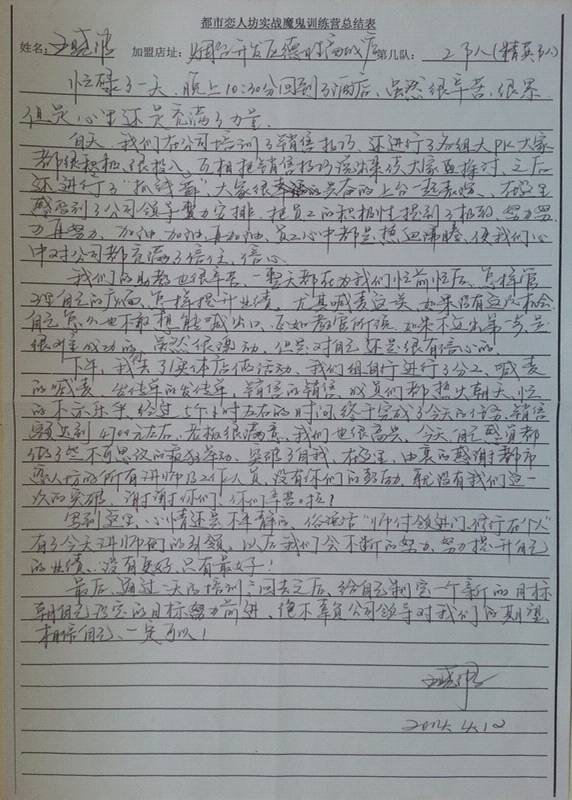 都市恋人坊实战魔鬼训练营总结表
姓名: 加盟店址: 烟台开发区德 店 第几队: 2
忙碌了一天,晚上10:30分回到了酒店,虽然很辛苦、很累
但是心里还是充满了力量。
白天,我们在公司培训了销售技巧,还进行了各组大PK大家
都很积极、很投入,互相把销售技巧 出来供大家 。之后
还进行了“抓钱舞”大家很 的上台一起表演、在这里
感 到了公司领导 安排,把员工的积极性提到了极致,努力努
力再努力、加油加油再加油,员工心中都是热血沸腾,使我们心
中对公司都充满了信任、信心。
我们的助教也很辛苦、一整天都在为我们忙前忙后、怎样管
理自己的店面、怎样提升业绩。尤其喊麦这块、如果没有这次机会
自己怎么也不敢想能喊出口、正如教官所说,如果不迈出第一步是
很难成功的,虽然很激动,但是对自己还是很有信心的。
下午,我 了实体店做活动、我们组自行进行了分工,喊麦
的喊麦、发传单的发传单,销售的销售,成员们都热火朝天、忙
的不亦乐乎,经过5个小时左右的时间终于完成了今天的任务,销售
额达到4700元左右,老板很满意,我们也很高兴,今天自己感觉都
做了些不可思议的疯狂举动、突破了自我,在这里,由衷的感谢都市
恋人坊的所有讲师及工作人员,没有你们的鼓励,就没有我们这一
次的突破,谢谢你们,你们辛苦啦!
写到这里,心情还是不平静的,俗说话“师付领进门,修行在个人”
有了今天讲师们的引领,以后我们会不断的努力、努力提升自己
的业绩、没有更好,只有最好!
最后,通过一天的培训,回去之后,给自己制定一个新的目标
朝自己设定的目标努力前进,绝不辜负公司领导对我们的期望
相信自己、一定可以!
2014.4.10